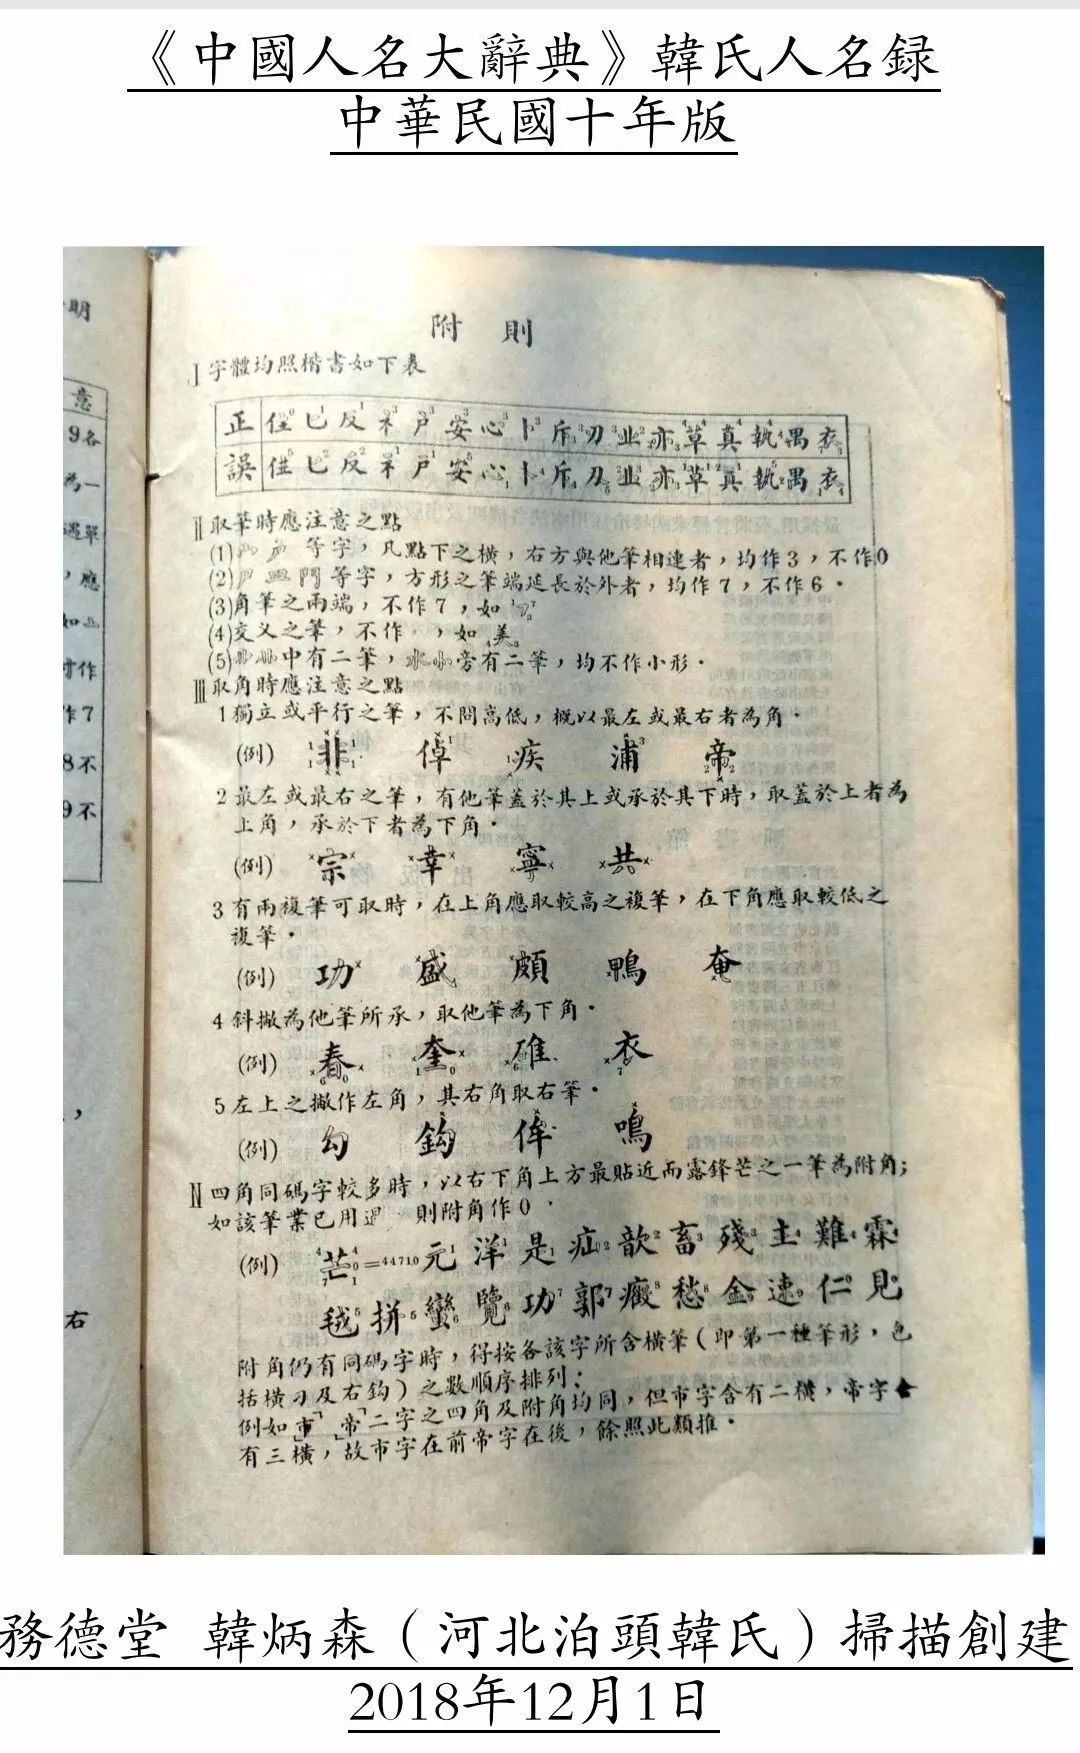 《中國人名大辭典》韓氏人名録
中華民國十年版
明
意
9各
為一
遇單
，應
如
作
作7
8不
9不
，
右
附則
I 字體均照楷書如下表
正 住 匕 反 礻 戶 安 心 卜 斥 刃 业 亦 草 真 執 禺 衣
誤 住 匕 反 礻 戶 安 心 卜 斥 刃 业 亦 草 真 執 禺 衣
II 取筆時應注意之點
(1) 等字，凡點下之橫，右方與他筆相連者，均作3，不作0
(2)尸 皿 門等字，方形之筆端延長於外者，均作7，不作6．
(3)角筆之兩端，不作7，如
(4)交叉之筆，不作 ，如 美
(5) 中有二筆，水小旁有二筆，均不作小形．
III 取角時應注意之點
1 獨立或平行之筆，不問高低，概以最左或最右者為角．
(例) 非 倬 疾 浦 帝
2 最左或最右之筆，有他筆蓋於其上或承於其下時，取蓋於上者為
上角，承於下者為下角．
(例) 宗 幸 寧 共
3 有兩複筆可取時，在上角應取較高之複筆，在下角應取較低之
複筆．
(例) 功 盛 頗 鴨 奄
4 斜撇為他筆所承，取他筆為下角．
(例) 春 奎 碓 衣
5 左上之撇作左角，其右角取右筆．
(例) 勾 鈎 侔 鳴
IV 四角同碼字較多時，以右下角上方最貼近而露鋒芒之一筆為附角；
如該筆業已用過 則附角作0．
(例) 芒=44710 元 洋 是 疝 歆 畜 殘 主 難 霖
毯 拼 蠻 覽 功 郭 癥 愁 金 速 仁 見
附角仍有同碼字時，得按各該字所含橫筆（即第一種筆形，包
括橫刁及右鈎）之數順序排列；
例如市 帝二字之四角及附角均同，但市字含有二橫，帝字
有三橫，故市字在前帝字在後，餘照此類推．
務德堂 韓炳森（河北泊頭韓氏）掃描創建
2018年12月1日